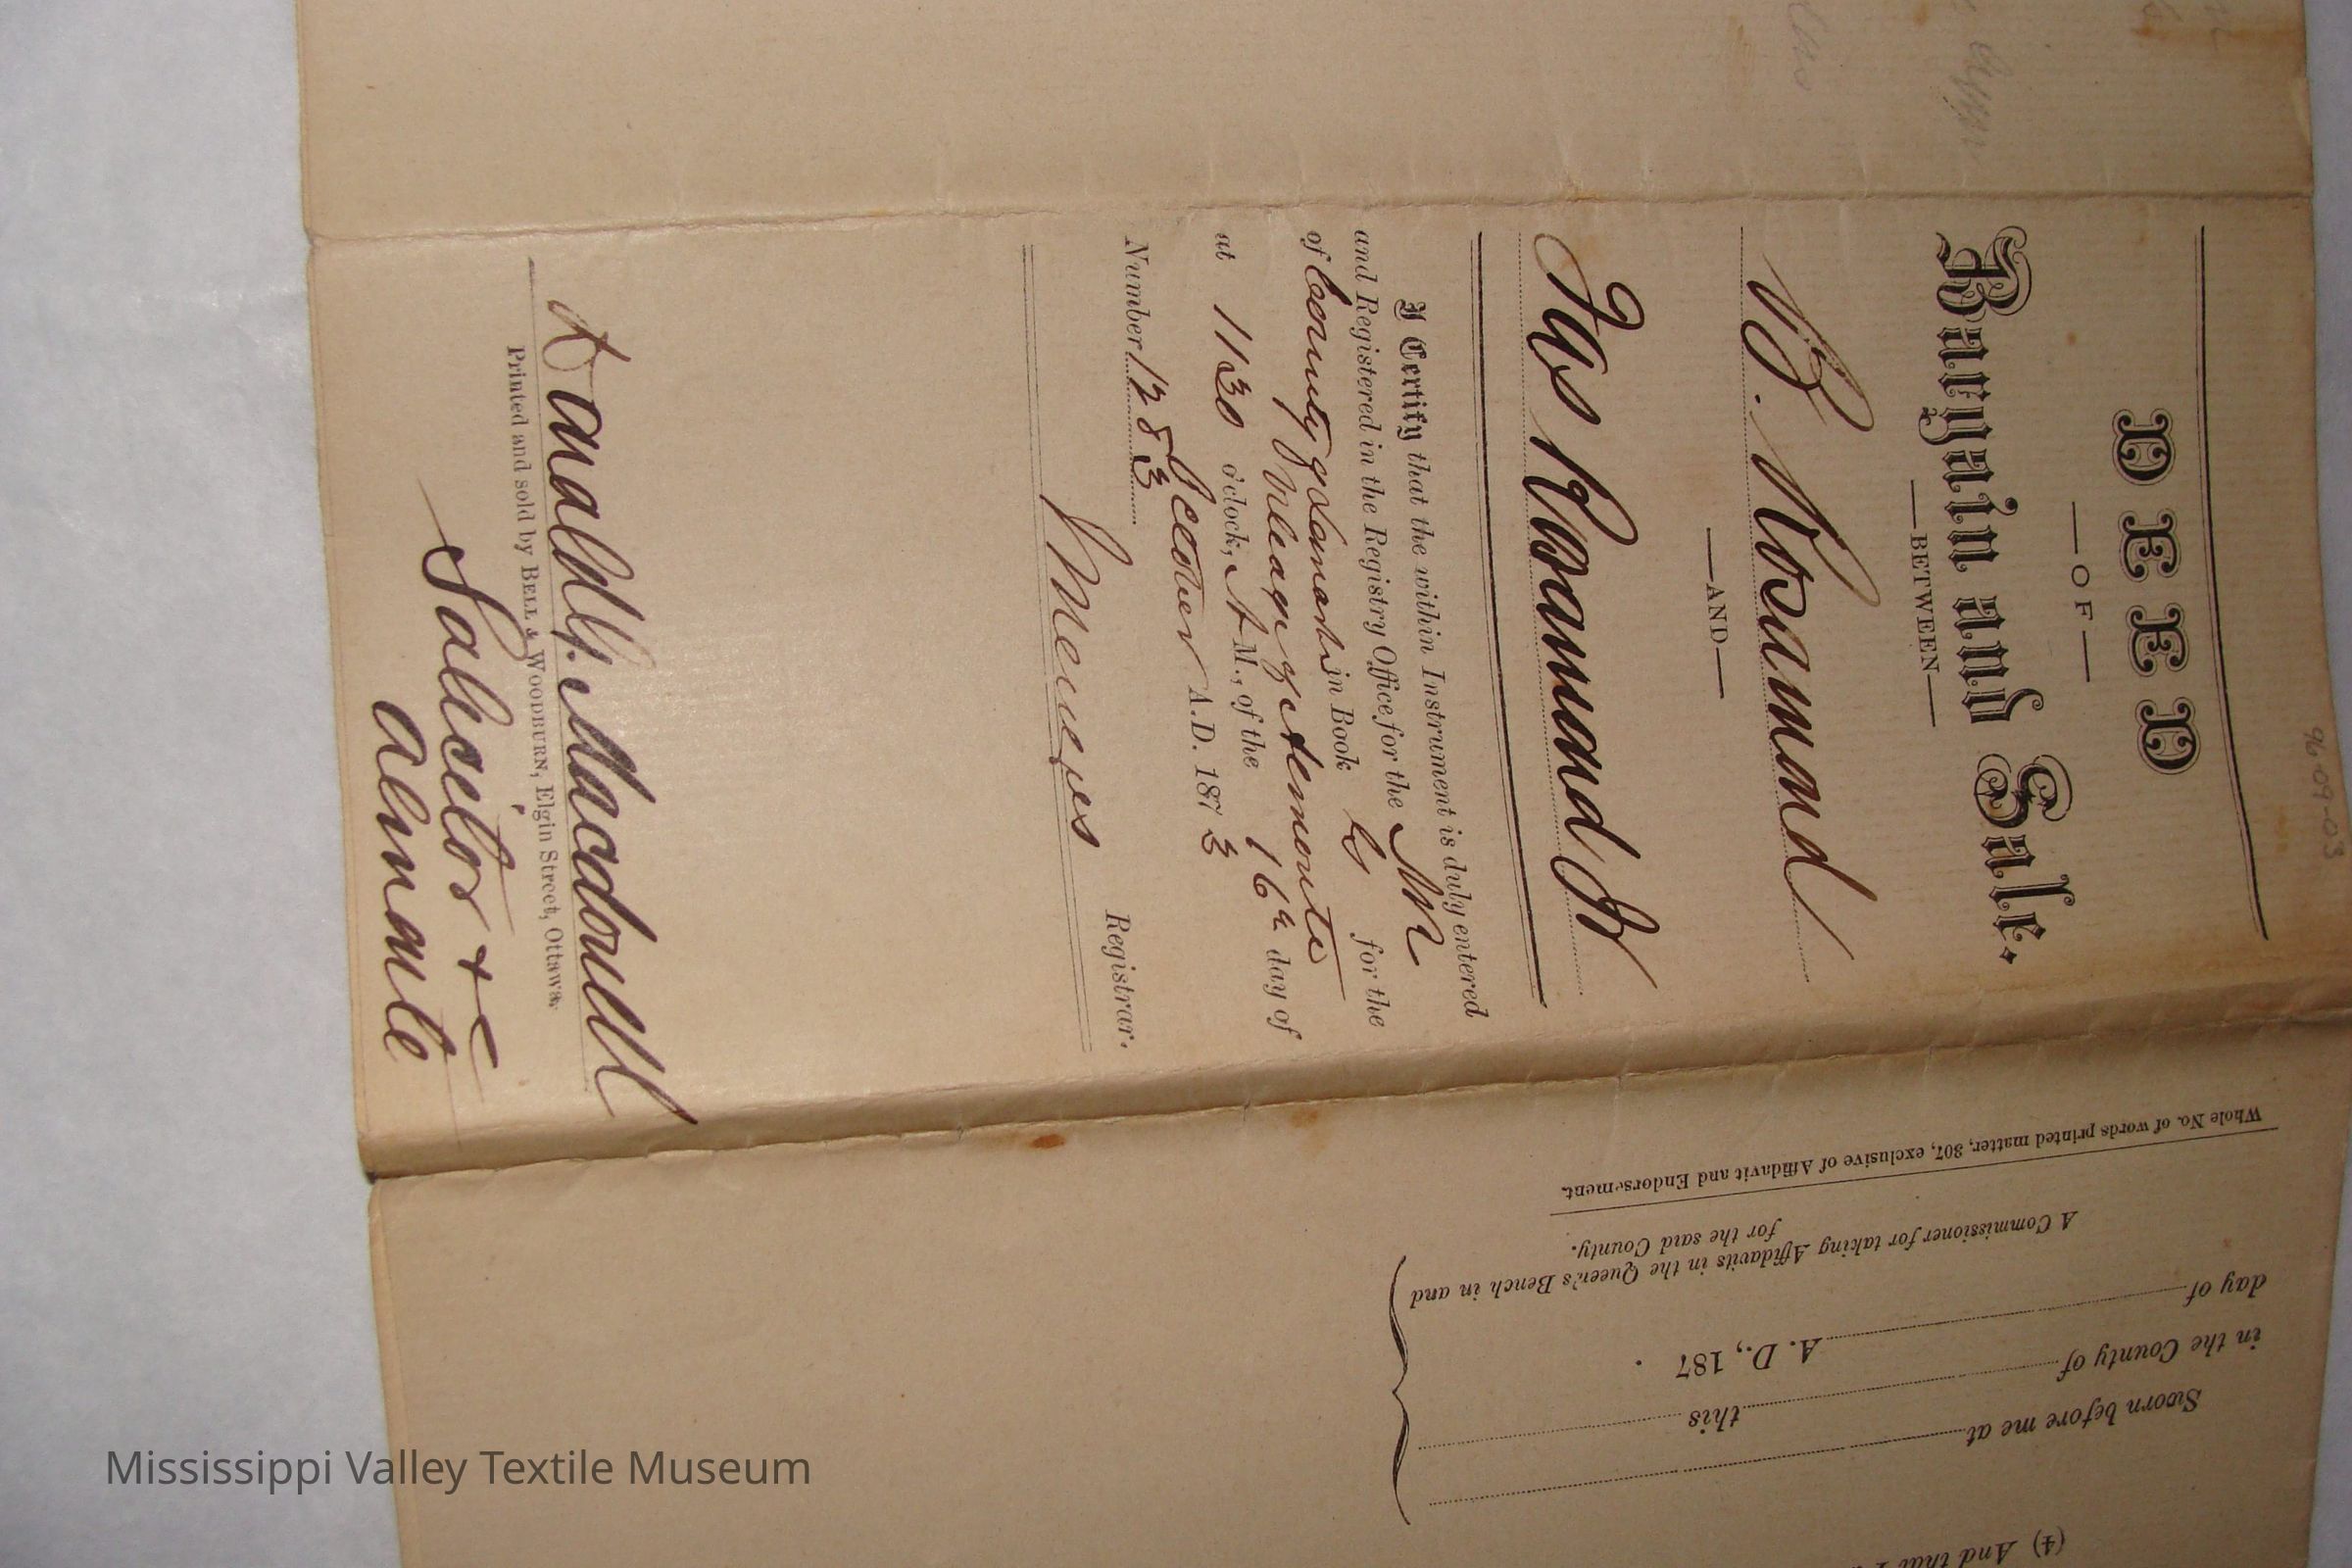 96-09-03
DEED
—OF—
Bargain and Sale.
—BETWEEN—
B. Rosamond
—AND—
Jas Rosamond Jr
I Certify that the within Instrument is duly entered
and Registered in the Registry Office for the NR
of County of Lanark in Book B for the
Village of Almonte
at 1130 o'clock, A M., of the 16th day of
December A.D. 1873
Number 1283
Menzies
Registrar.
Macdowell
Printed and sold by BELL & WOODBURN, Elgin Street, Ottawa.
Solicitor &c
Almonte
Whole No. of words printed matter, 307, exclusive of Affidavit and Endorsement.
A Commissioner for taking Affidavits in the Queen's Bench in and
for the said County.
day of A. D., 187 .
in the County of this
Sworn before me at
(4) And that I
Mississippi Valley Textile Museum